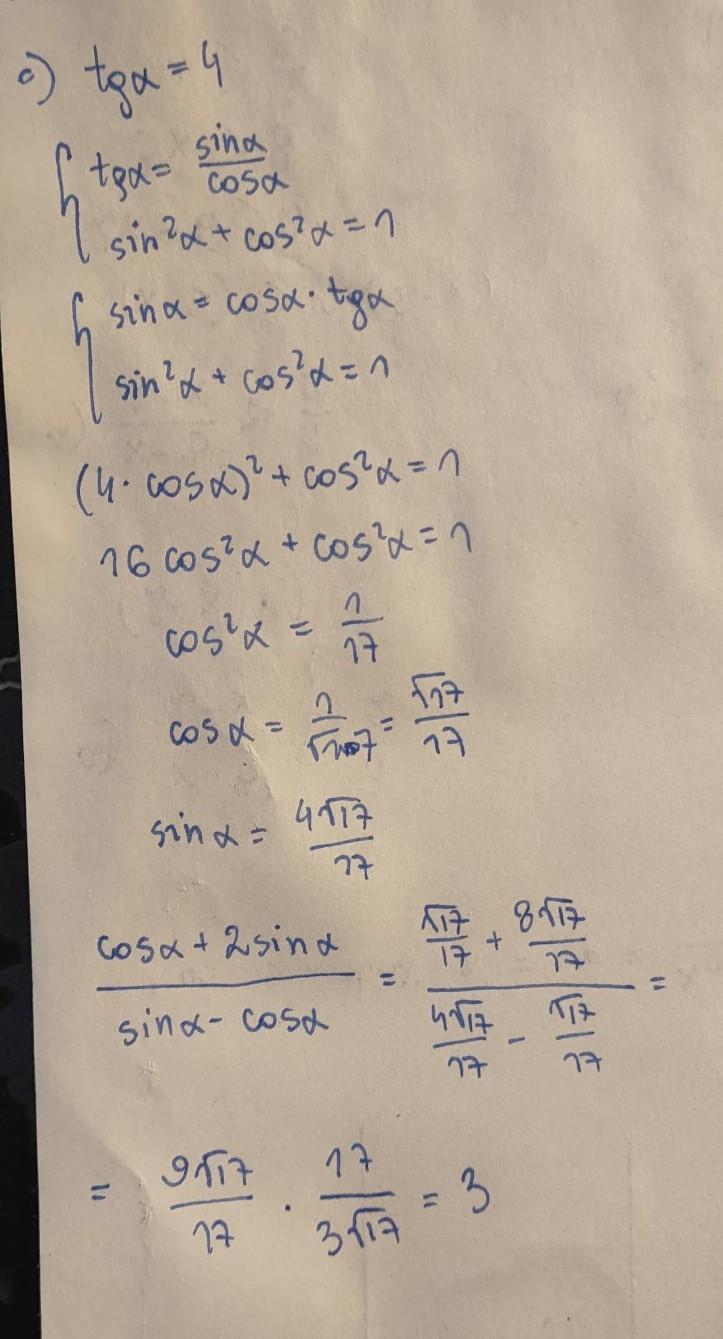 c) tgα = 4
tgα = sinα/cosα
sin²α + cos²α = 1
sinα = cosα · tgα
sin²α + cos²α = 1
(4 · cosα)² + cos²α = 1
16 cos²α + cos²α = 1
cos²α = 1/17
cosα = 1/√17 = √17/17
sinα = 4√17/17
(cosα + 2sinα)/(sinα - cosα) = (√17/17 + 8√17/17)/(4√17/17 - √17/17) =
= 9√17/17 · 17/3√17 = 3